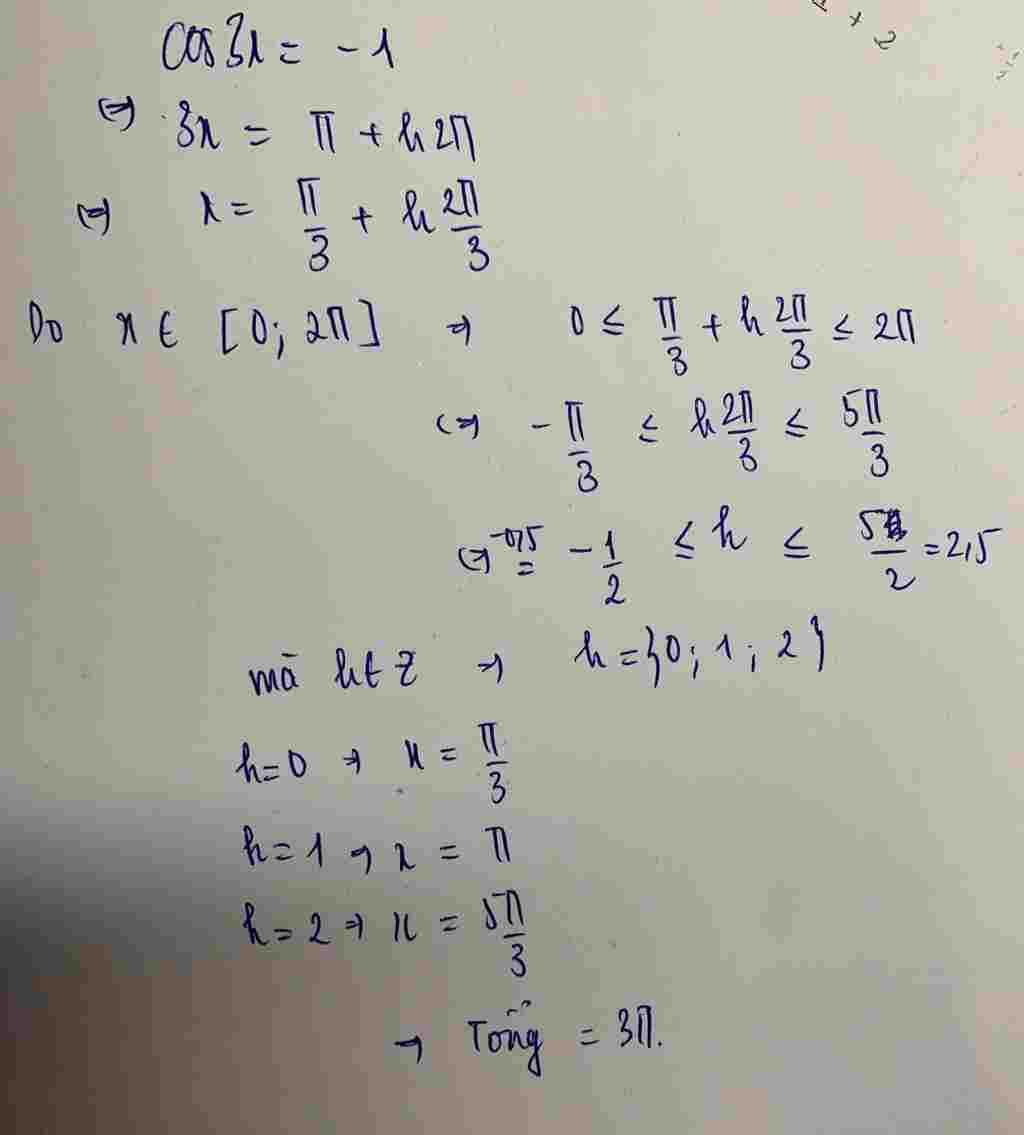 cos3x = -1
⇔ 3x = π + k2π
⇔ x = π/3 + k2π/3
Do x ∈ [0; 2π] ⇒ 0 ≤ π/3 + k2π/3 ≤ 2π
⇔ -π/3 ≤ k2π/3 ≤ 5π/3
⇔ -0,5 = -1/2 ≤ k ≤ 5/2 = 2,5
mà k ∈ Z ⇒ k = {0; 1; 2}
k=0 ⇒ x = π/3
k=1 ⇒ x = π
k=2 ⇒ x = 5π/3
⇒ Tổng = 3π.